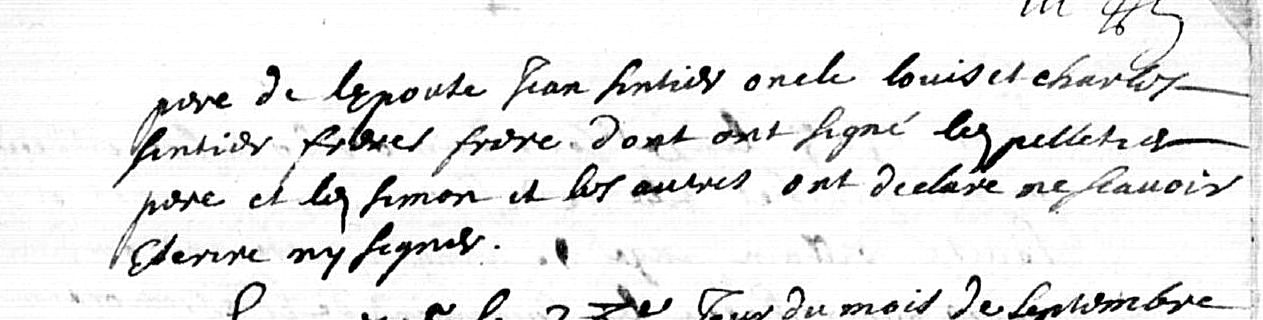 pere de lepouse Jean sintier oncle louis et charles
sintier freres frere dont ont signé led pelletier
pere et led simon et les autres ont declare ne scauoir
Ecrire ny signer.
le Jour du mois de septembre